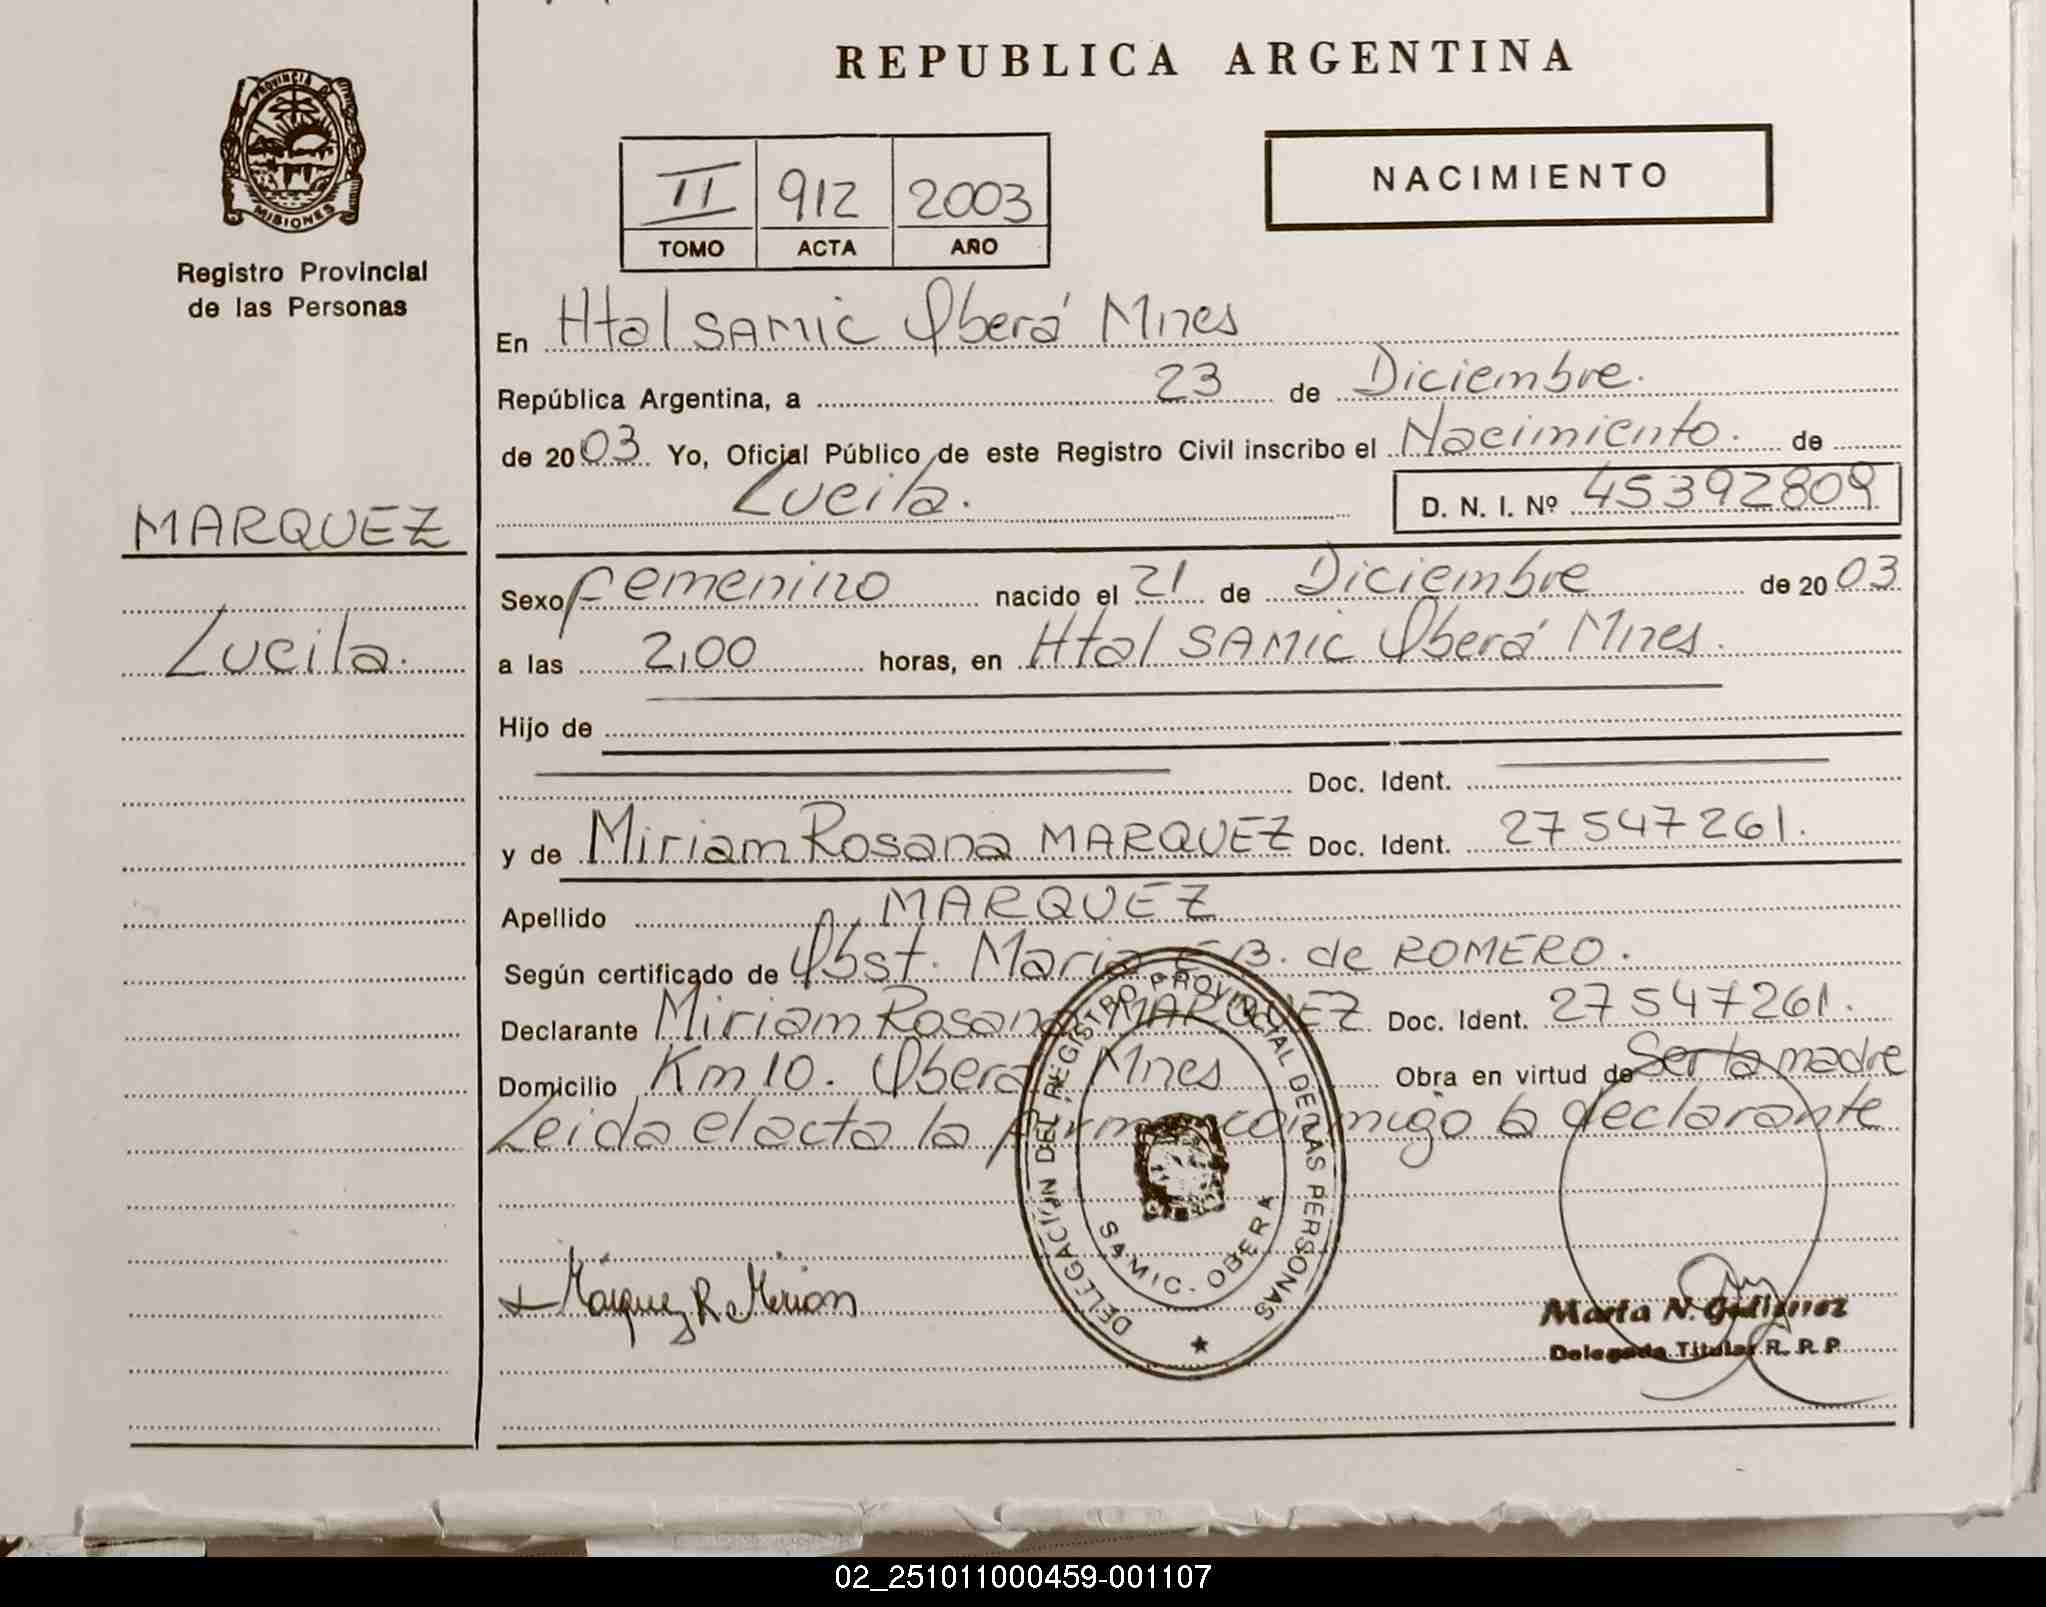 REPUBLICA ARGENTINA
PROVINCIA DE
MISIONES
Registro Provincial
de las Personas
NACIMIENTO
II 912 2003
TOMO ACTA AÑO
En Htal SAMIC Oberá Mnes
República Argentina, a 23 de Diciembre.
de 2003 Yo, Oficial Público de este Registro Civil inscribo el Nacimiento. de
Lucila.
D. N. I. Nº 45392809
MARQUEZ
Lucila.
Sexo femenino nacido el 21 de Diciembre de 2003
a las 2,00 horas, en Htal SAMIC Oberá Mnes.
Hijo de
Doc. Ident.
y de Miriam Rosana MARQUEZ Doc. Ident. 27547261.
Apellido MARQUEZ
Según certificado de Obst. Maria E B. de ROMERO.
Declarante Miriam Rosana MARQUEZ Doc. Ident. 27547261.
Domicilio Km 10. Oberá Mnes Obra en virtud de Ser la madre
Leida el acta la firma conmigo la declarante
DELEGACIÓN DEL REGISTRO PROVINCIAL DE LAS PERSONAS
SAMIC. OBERA
Márquez R Mirian
Marta N. Gutierrez
Delegada Titular R. P. P.
02_251011000459-001107